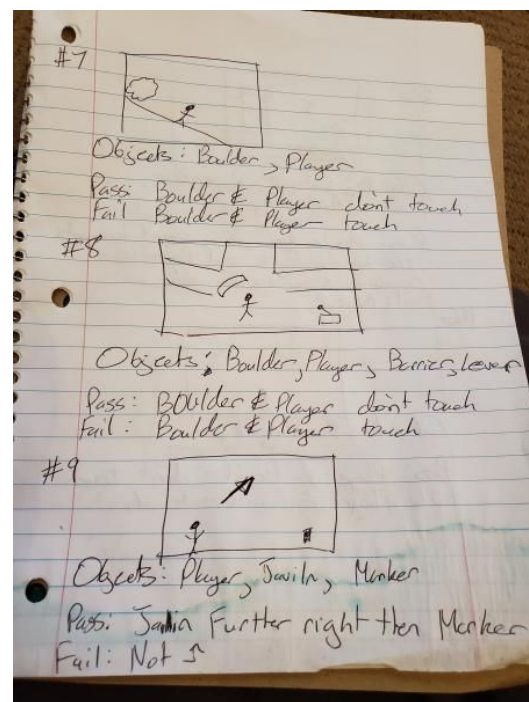 #7
Objects: Boulder, Player
Pass: Boulder & Player don't touch
Fail Boulder & Player touch
#8
Objects: Boulder, Player, Barrier, Lever
Pass: BOUlder & Player don't touch
Fail: Boulder & Player touch
#9
Objects: Player, Javiln, Marker
Pass: Further right then Marker
Fail: Not